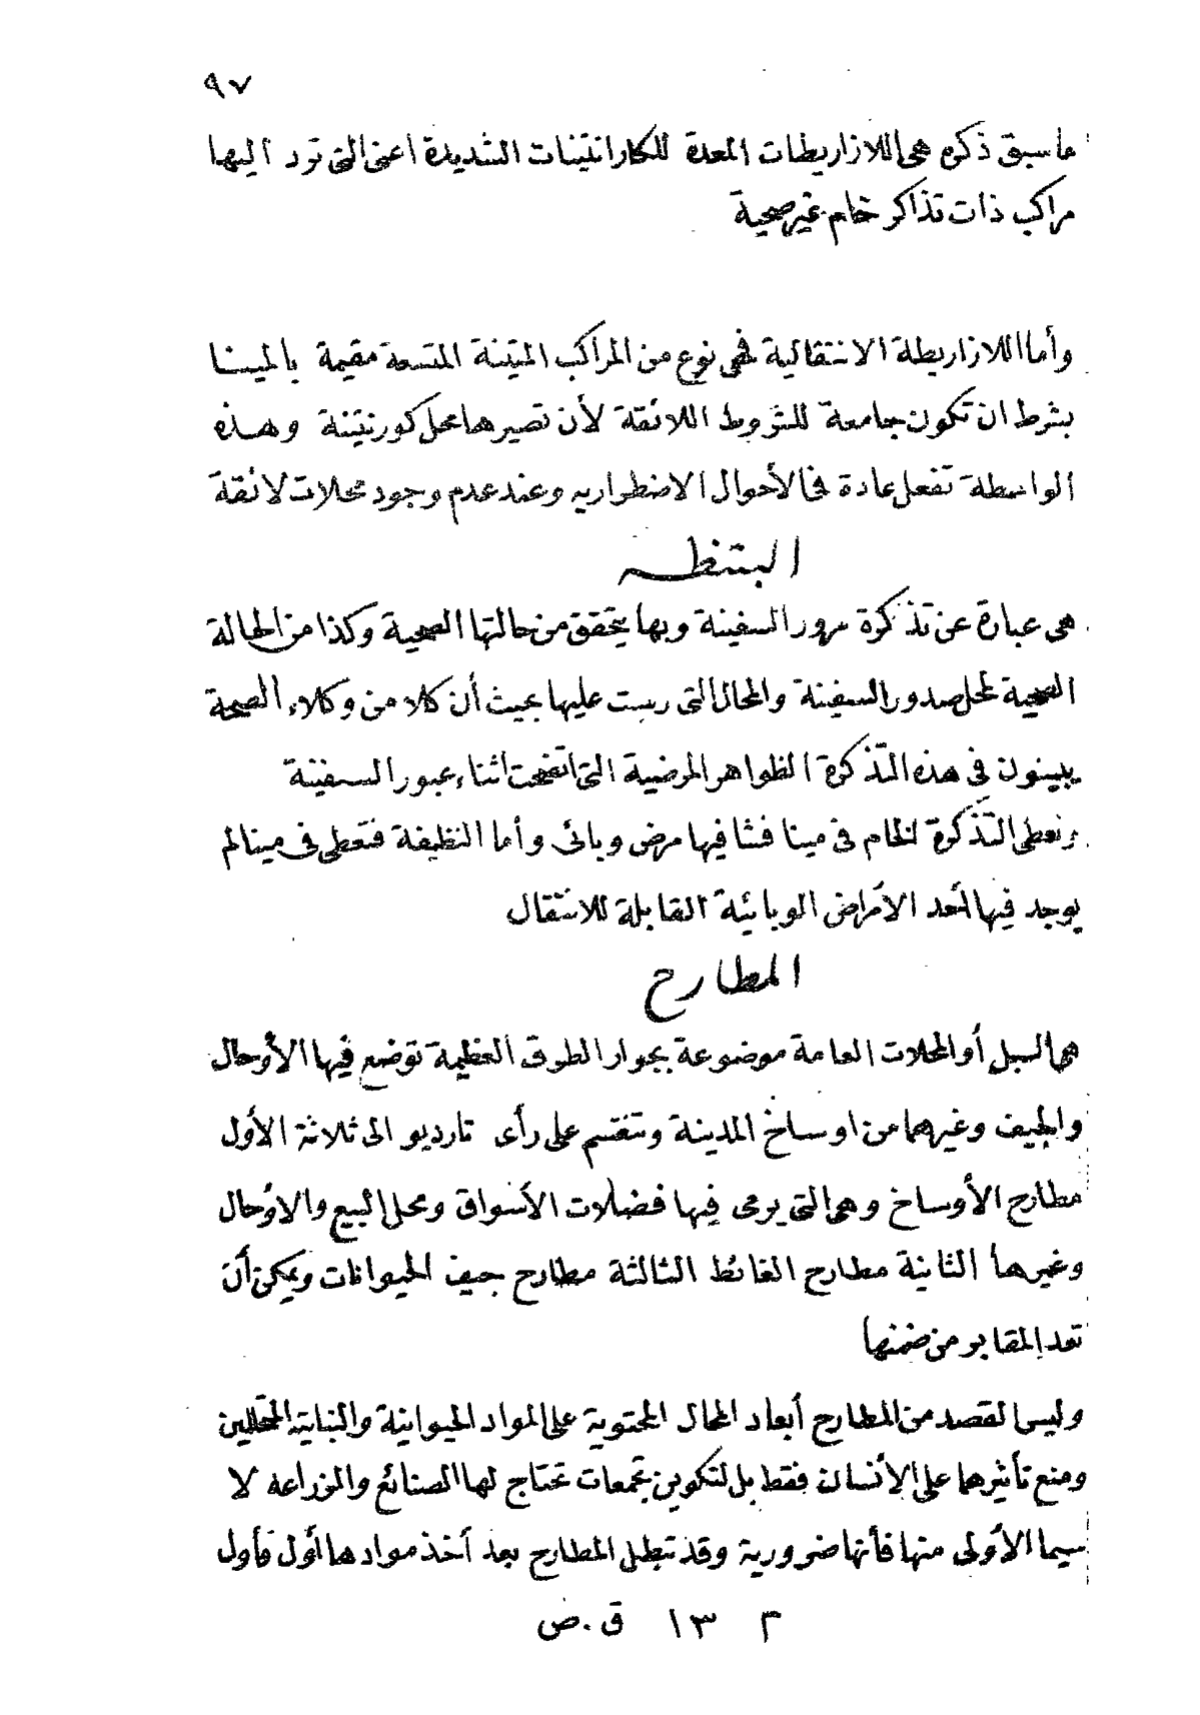 ٩٧
ما سبق ذكره هى اللازاريطات المعدة للكارانتينات الشديدة اعنى التى ترد اليها
مراكب ذات تذاكر خام غير صحية
وأما اللازاريطة الانتقالية فهى نوع من المراكب المتينة المتسعة مقيمة بالمينا
بشرط ان تكون جامعة للشروط اللائقة لأن تصيرها محل كورنتينة وهذه
الواسطة تفعل عادة فى الأحوال الاضطراريه وعند عدم وجود محلات لائقة
البتنطه
هى عبارة عن تذكرة مرور السفينة وبها يتحقق من حالتها الصحية وكذا من الحالة
الصحية لمحل صدور السفينة والمحال التى رست عليها بحيث أن كلا من وكلاء الصحة
يبينون فى هذه التذكرة الظواهر المرضية التى اتضحت اثناء عبور السفينة
وتعطى التذكرة الخام فى مينا فشا فيها مرض وبائى وأما النظيفة فتعطى فى مينا لم
يوجد فيها أحد الأمراض الوبائية القابلة للانتقال
المطارح
هى السبل أو المحلات العامة موضوعة بجوار الطرق العظيمة توضع فيها الأوحال
والجيف وغيرهما من اوساخ المدينة وتنقسم على رأى تارديو الى ثلاثة الأول
مطارح الأوساخ وهى التى يرمى فيها فضلات الأسواق ومحل البيع والاوحال
وغيرها الثانية مطارح الغائط الثالثة مطارح جيف الحيوانات ويمكن أن
تعد المقابر من ضمنها
وليس القصد من المطارح أبعاد المحال المحتوية على المواد الحيوانية والنباتية المتحللين
ومنع تأثيرهما على الأنسان فقط بل لتكوين تجمعات تحتاج لها الصنائع والزراعه لا
سيما الأولى منها فأنها ضرورية وقد تبطل المطارح بعد أخذ موادها أول فأول
٢ ١٣ ق.ص